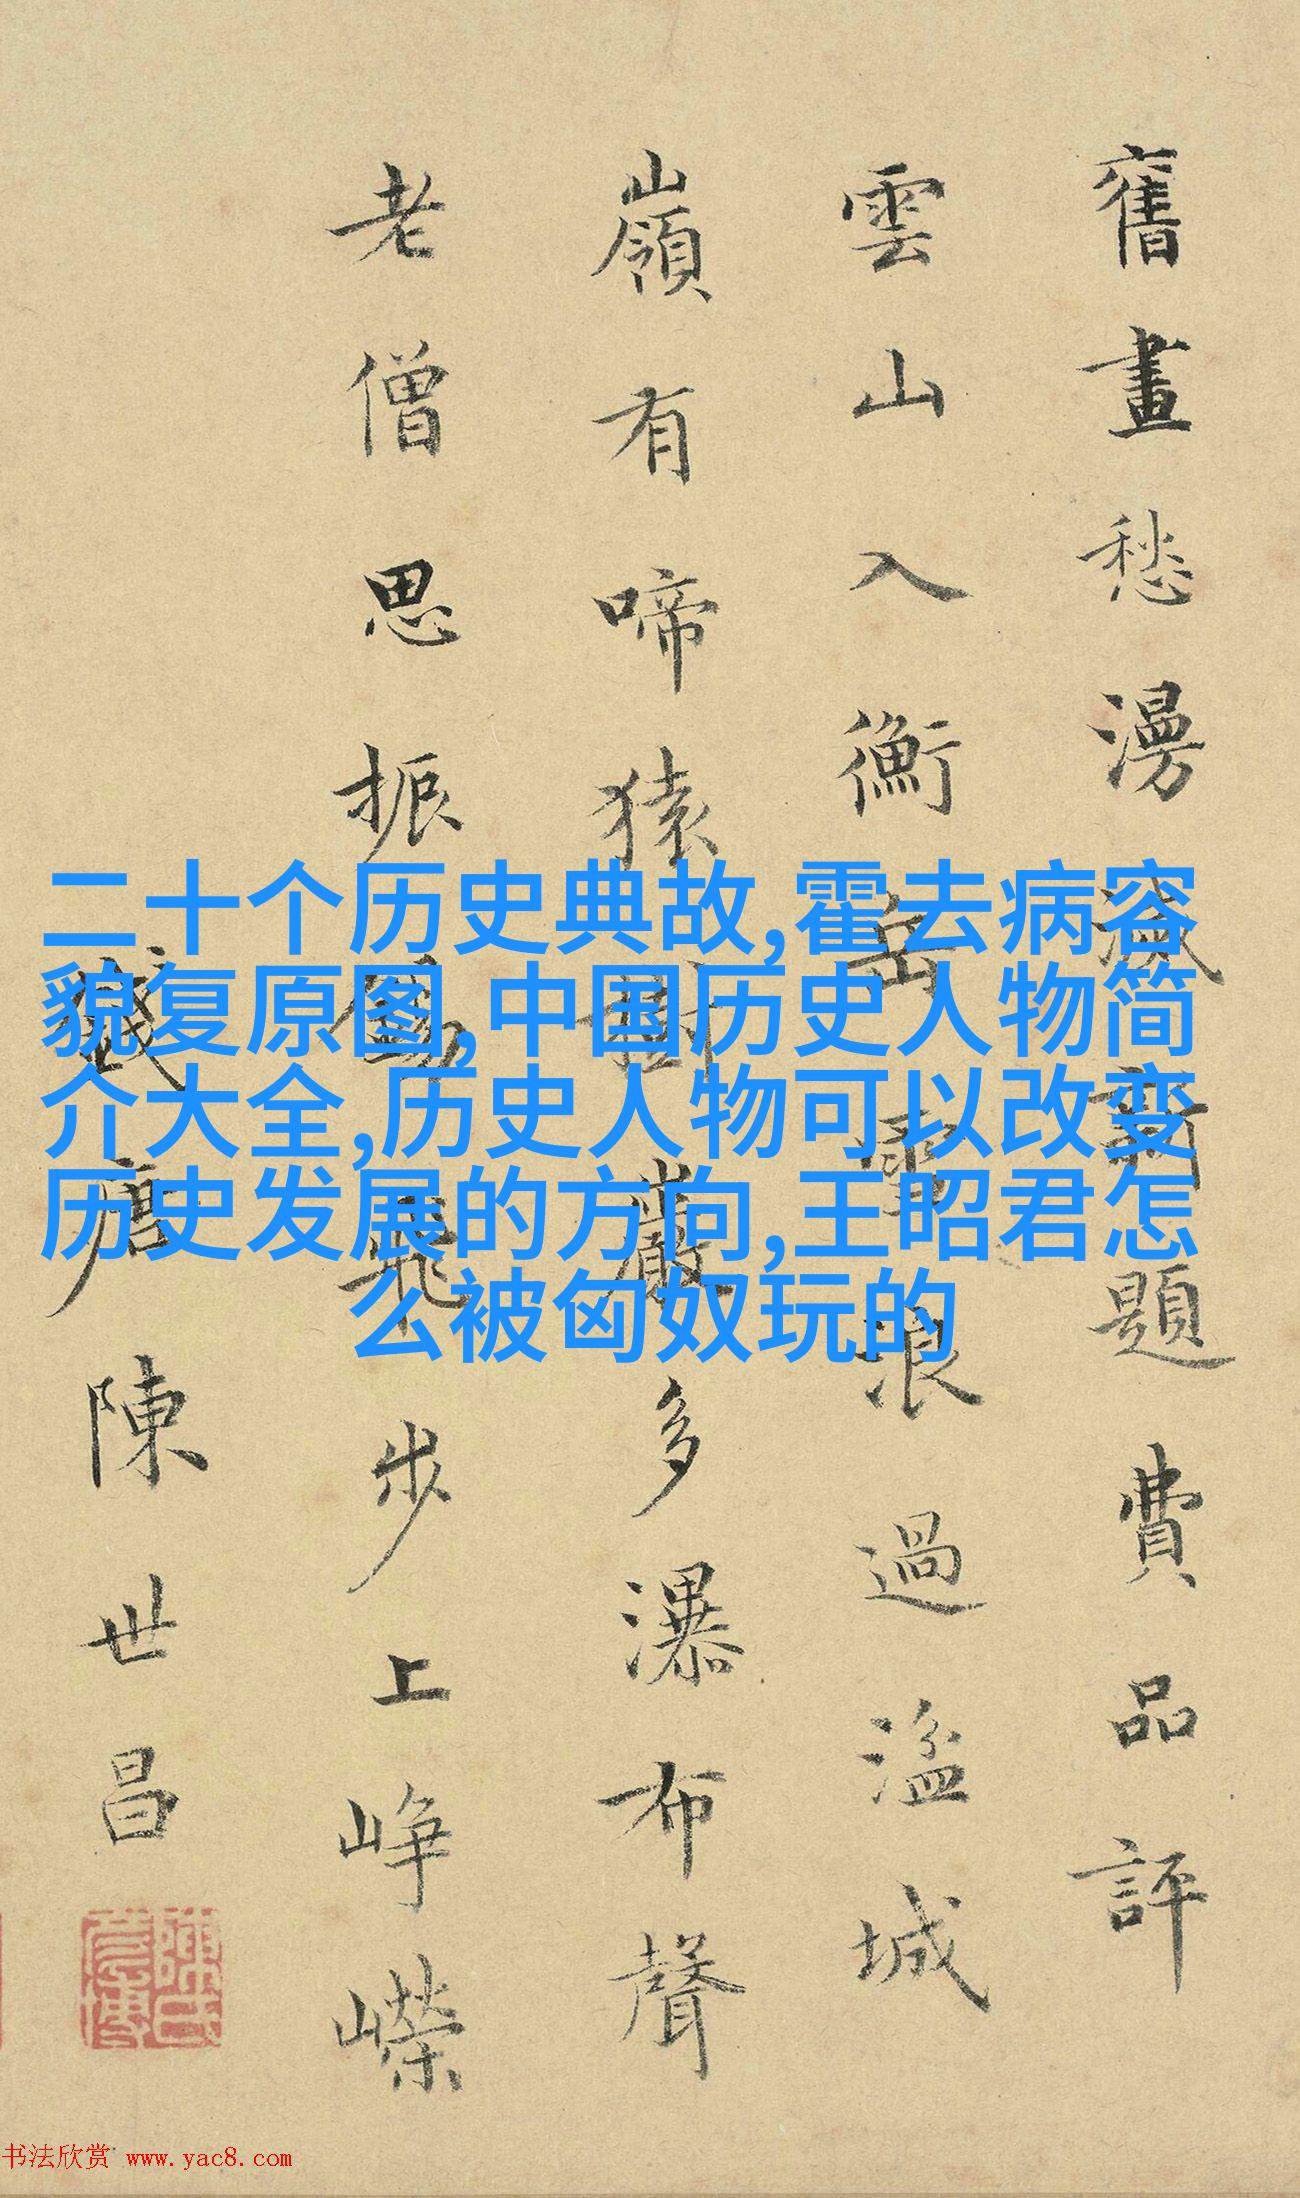 舊畫愁漫滅新題費品評
雲山入衡岳雪浪過湓城
嶺有啼猿樹巖多瀑布聲
老僧思振錫飛步上崢嶸
陳世昌
二十个历史典故,霍去病容
貌复原图,中国历史人物简
介大全,历史人物可以改变
历史发展的方向,王昭君怎
么被匈奴玩的
书法欣赏 www.yac8.com